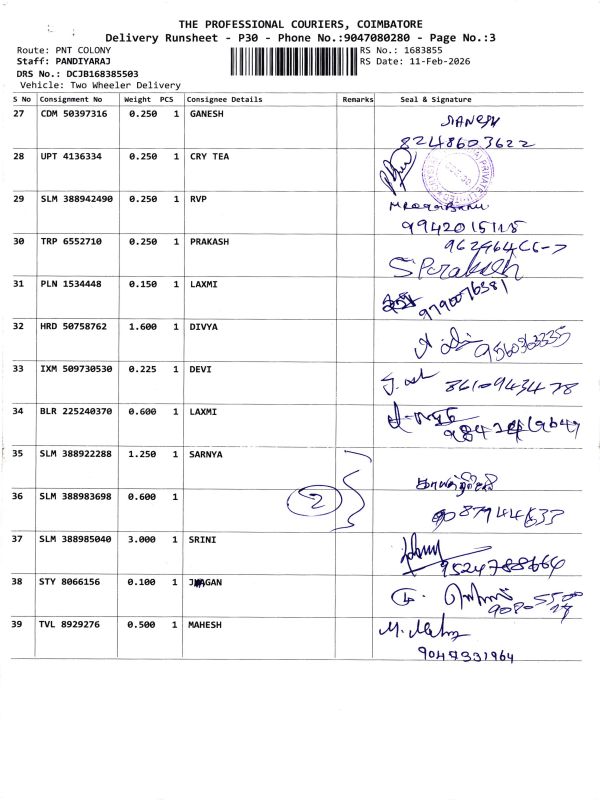 THE PROFESSIONAL COURIERS, COIMBATORE
Delivery Runsheet - P30 - Phone No.:9047080280 - Page No.:3
Route: PNT COLONY
RS No.: 1683855
Staff: PANDIYARAJ
RS Date: 11-Feb-2026
DRS No.: DCJB168385503
Vehicle: Two Wheeler Delivery
S No Consignment No Weight PCS Consignee Details Remarks Seal & Signature
27 CDM 50397316 0.250 1 GANESH
8248603622
28 UPT 4136334 0.250 1 CRY TEA
29 SLM 388942490 0.250 1 RVP
30 TRP 6552710 0.250 1 PRAKASH
S Prakash
31 PLN 1534448 0.150 1 LAXMI
9790076381
32 HRD 50758762 1.600 1 DIVYA
9560363335
33 IXM 509730530 0.225 1 DEVI
8610943478
34 BLR 225240370 0.600 1 LAXMI
35 SLM 388922288 1.250 1 SARNYA
36 SLM 388983698 0.600 1
2
37 SLM 388985040 3.000 1 SRINI
9524788664
38 STY 8066156 0.100 1
39 TVL 8929276 0.500 1 MAHESH